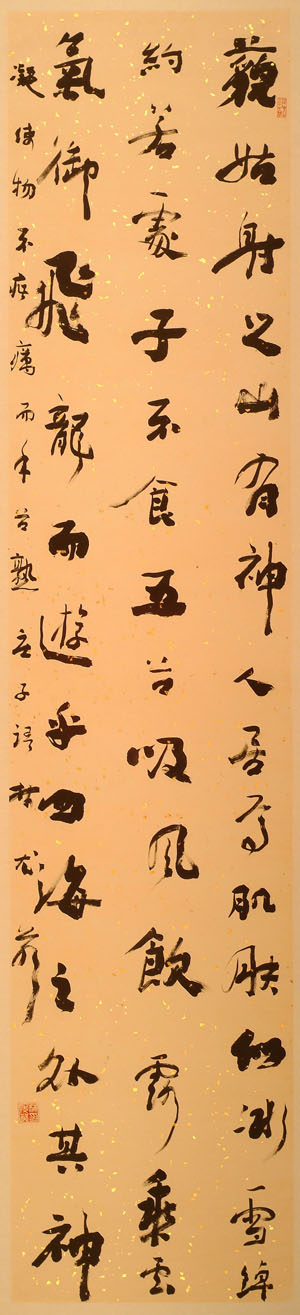 藐姑射之山有神人居焉肌膚似冰雪綽
約若處子不食五谷吸風飲露乘雲
氣御飛龍而遊乎四海之外其神
凝使物不疵癘而年谷熟庄子語